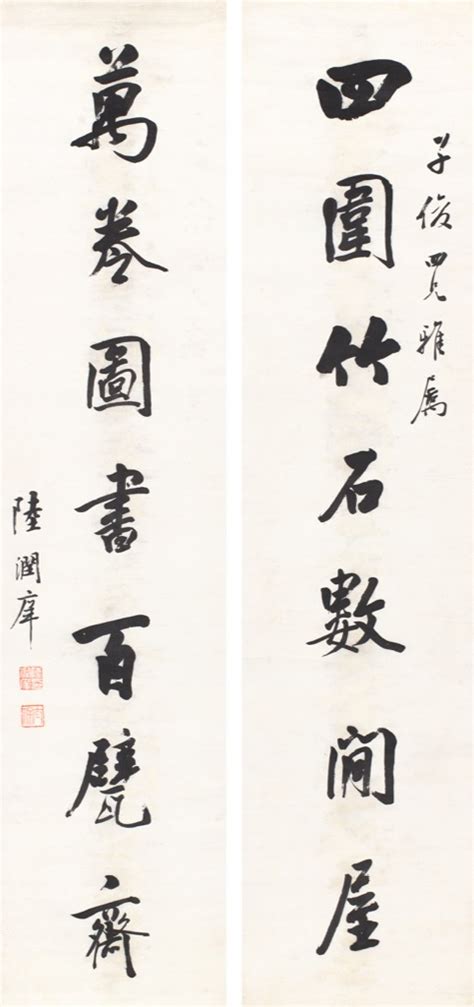 子俊四兄雅属
四圍竹石數間屋
萬卷圖書百甓齋
陸潤庠